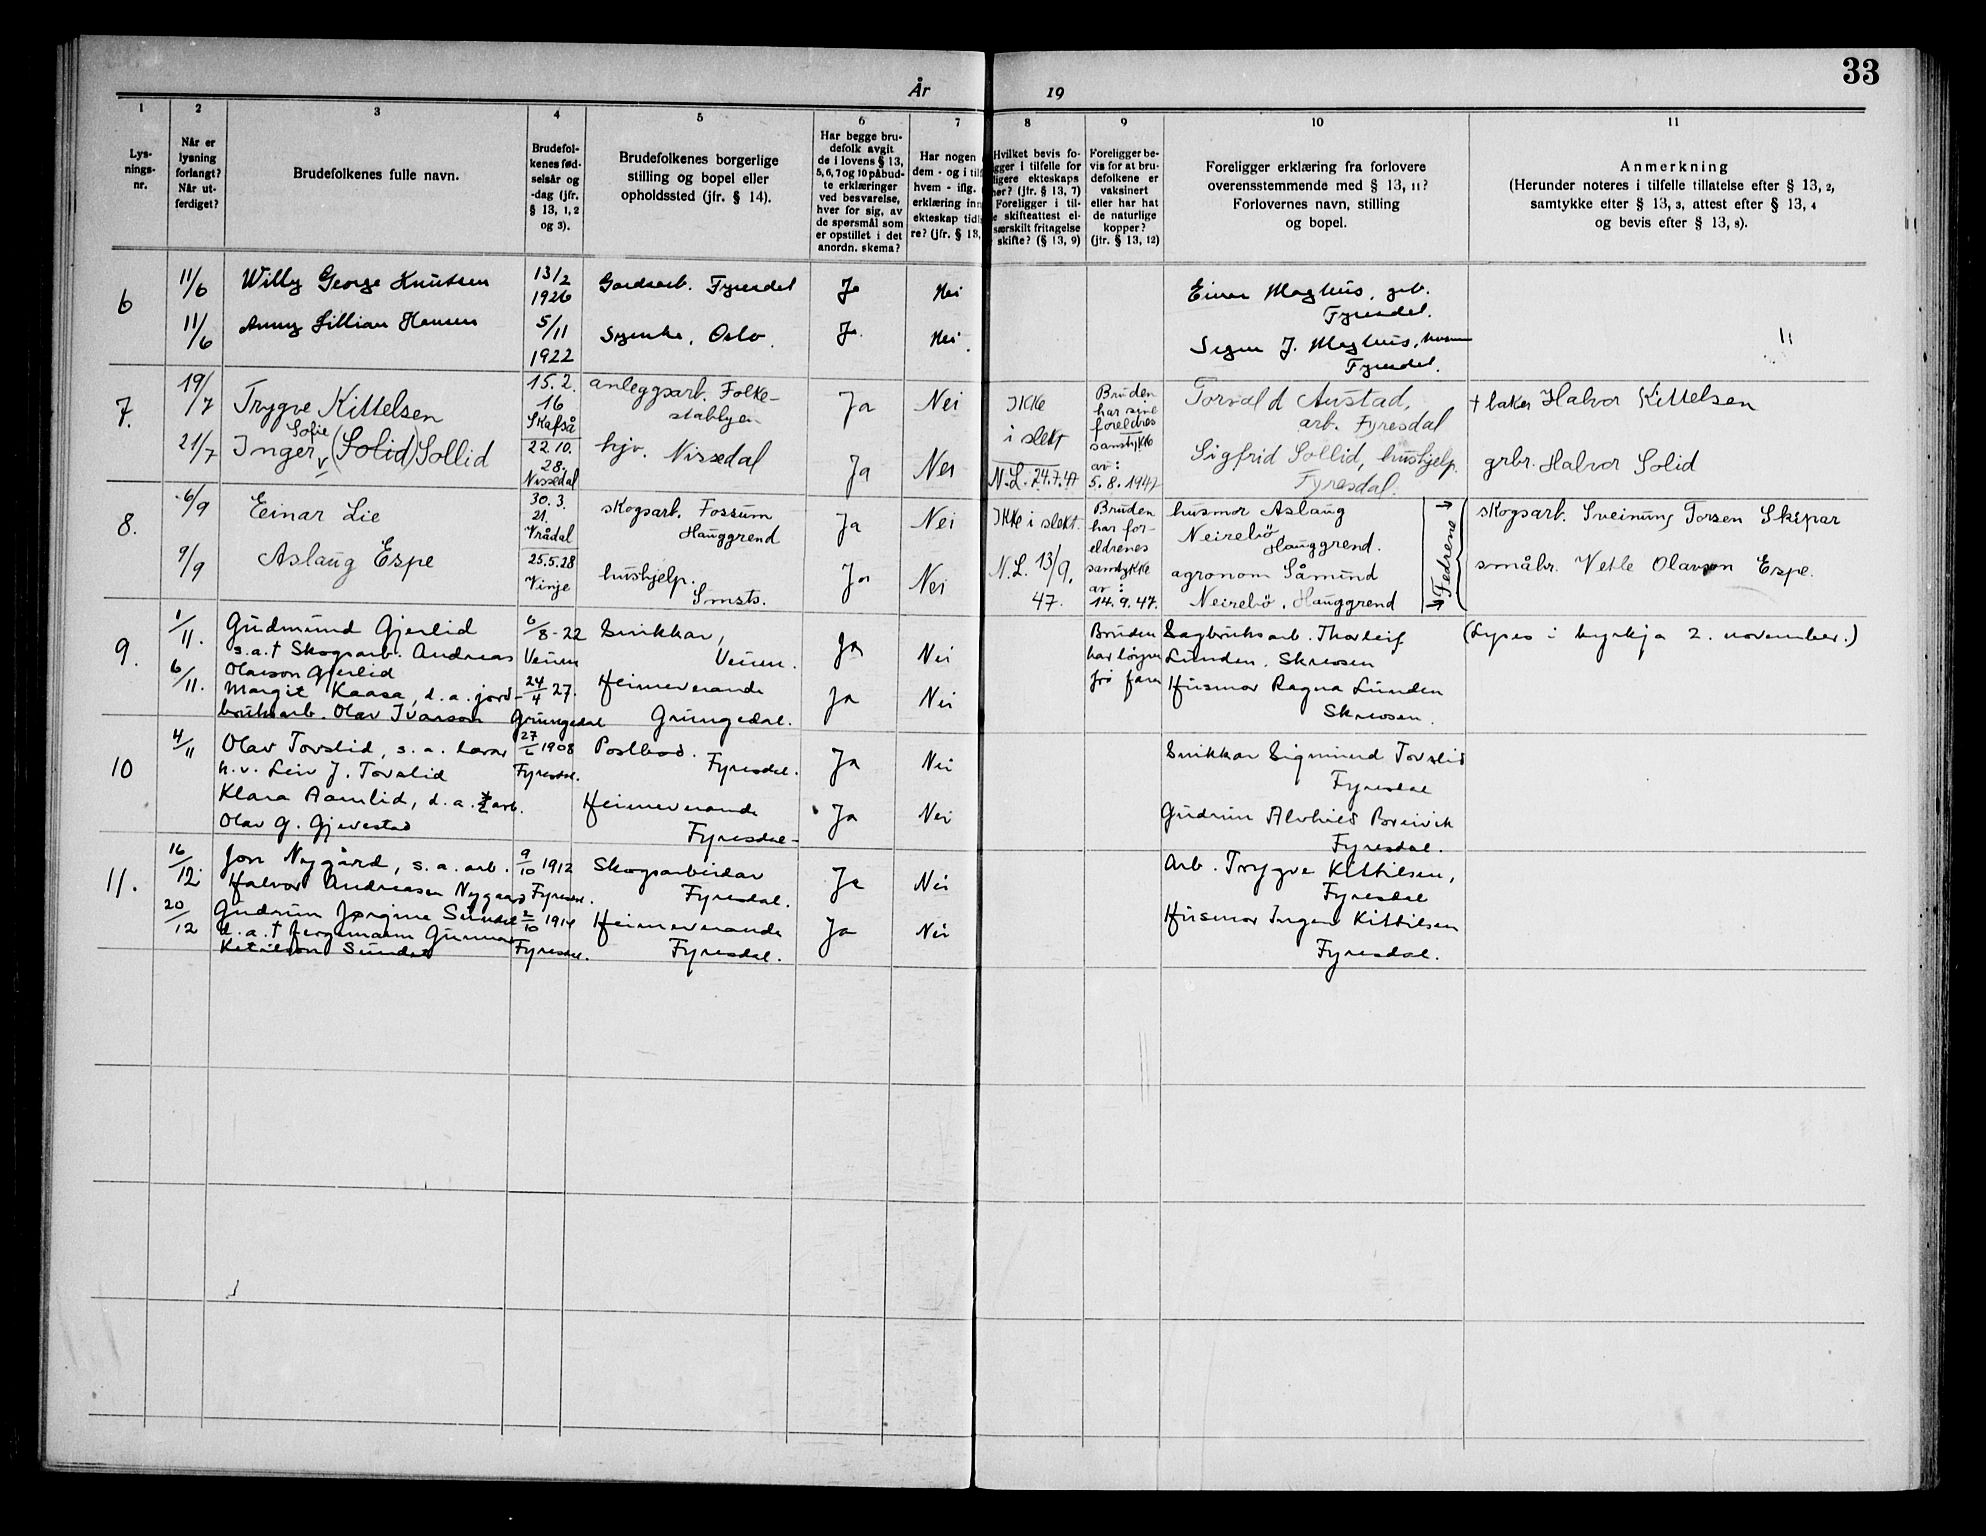 33
År
19
1
2
3
4
5
6
7
8
9
10
11
Lys-
nings-
nr.
Når er
lysning
forlangt?
Når ut-
ferdiget?
Brudefolkenes fulle navn.
Brudefol-
kenes fød-
selsår og
-dag (jfr.
§ 13, 1, 2
og 3).
Brudefolkenes borgerlige
stilling og bopel eller
opholdssted (jfr. § 14).
Har begge bru-
defolk avgit
de i lovens § 13,
5, 6, 7 og 10 påbud-
te erklæringer
ved besvarelse,
hver for sig, av
de spørsmål som
er opstillet i det
anordn. skema?
Har nogen
dem - og i tilf
hvem - iflg.
erklæring inn
ekteskap tidl
re? (jfr. § 13,
Hvilket bevis fo-
gger i tilfelle for
ligere ekteskaps
her? (jfr. § 13, 7)
Foreligger i til-
e skifteattest el-
særskilt fritagelse
skifte? (§ 13, 9)
Foreligger be-
vis for at bru-
defolkene er
vaksinert
eller har hat
de naturlige
kopper?
(jfr. § 13, 12)
Foreligger erklæring fra forlovere
overensstemmende med § 13, 11?
Forlovernes navn, stilling
og bopel.
Anmerkning
(Herunder noteres i tilfelle tillatelse efter § 13, 2,
samtykke efter § 13, 3, attest efter § 13, 4
og bevis efter § 13, 8).
6
11/6
Willy George Knutsen
13/2
1926
Gardsarb. Fyresdal
Ja
Nei
Einar Moghus, grb.
Fyresdal.
11/6
Anny Lillian Hansen
5/11
1922
Syerske, Oslo.
Ja
Nei.
Signe J. Moghus, husmor
Fyresdal.
7.
19/7
Trygve Kittelsen
15.2.
16
Skafså
anleggsarb. Folke-
stadbyen
Ja
Nei
Ikke
i slekt
Bruden
har sine
foreldres
samtykke
av:
5.8.1947
Torvald Austad,
arb. Fyresdal
† baker Halvor Kittelsen
21/7
Inger Sofie (Solid) Sollid
22.10.
28.
Nissedal
hjv. Nissedal
Ja
Nei
N.L. 24.7.47
Sigfrid Sollid, hushjelp.
Fyresdal.
grbr. Halvor Solid
8.
6/9
Einar Lie
30.3.
21.
Vrådal
skogsarb. Fossum
Hauggrend
Ja
Nei
Ikke i slekt.
Bruden
har for-
eldrenes
samtykke
av:
14.9.47.
husmor Aslaug
Neirebö
Hauggrend.
← Fedrene →
skogsarb. Sveinung Torsen Skipar
9/9
Aslaug Espe
25.5.28
Vinje
hushjelp.
Smsts.
Ja
Nei
N.L. 13/9.
47.
agronom Såmund
Neirebö, Hauggrend
småbr. Vetle Olavson Espe.
9.
1/11.
Gudmund Gjerlid
s.a.† Skogsarb. Andreas
Olavson Gjerlid
6/8-22
Veum
Snikkar,
Veum.
Ja
Nei
Bruden
har løyve
frå faren
Sagbruksarb. Thorleif
Lunden, Skreosen
(Lyses i kyrkja 2. november.)
6/11.
Margit Kaasa, d.a. jord-
bruksarb. Olav Ivarson
24/4 27.
Grungedal
Heimeverande
Grungedal.
Ja
Nei
Husmor Ragna Lunden
Skreosen.
10
4/11
Olav Torslid, s.a. lærar
h.v. Leiv J. Torslid
27/6 1908
Fyresdal.
Postbod.
Fyresdal.
Ja
Nei
Snikkar Sigmund Torslid
Fyresdal
Klara Aamlid, d.a. arb.
Olav G. Gjevestad
Heimeverande
Fyresdal-
Ja
Nei
Gudrun Alvhild Breivik
Fyresdal.
11.
16/12
Jon Nygård, s.a. arb.
Halvor Andreasen Nygaard
9/10 1912
Fyresdal.
Skogsarbeidar
Fyresdal.
Ja
Nei
Arb. Trygve Kittilsen,
Fyresdal
20/12
Gudrun Jørgine Sundet
d.a.† fergemann Gunnar
Ketilson Sundet
2/10 1914
Fyresdal.
Heimeverande
Fyresdal.
Ja
Nei
Husmor Inger Kittilsen
Fyresdal.